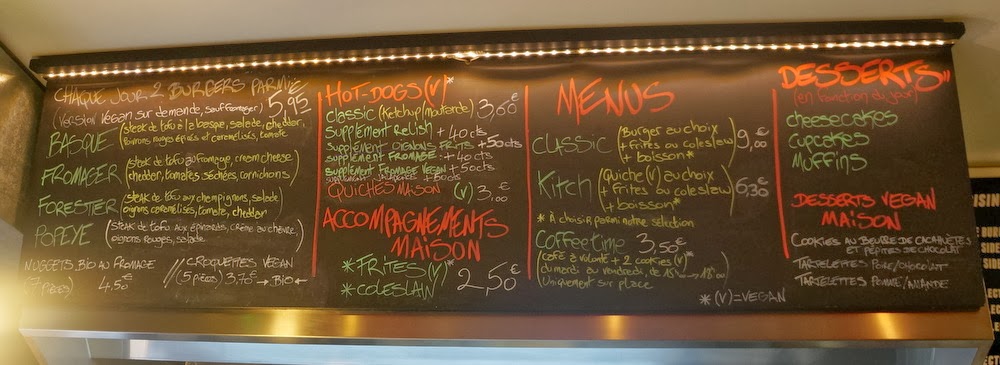 CHAQUE JOUR 2 BURGERS PARMI
(Version Végan sur demande, sauf fromager) 5,95
BASQUE (steak de tofu à la basque, salade, cheddar,
poivrons rouges épicés et caramélisés, tomate
FROMAGER (steak de tofu au fromage, cream cheese
cheddar, tomates séchées, cornichons)
FORESTIER (steak de tofu aux champignons, salade
oignons caramélisés, tomate, cheddar
POPEYE (steak de tofu aux épinards, crème au chèvre,
oignons rouges, salade
NUGGETS BIO AU FROMAGE
(7 pièces) 4,50€
// CROQUETTES VEGAN
(5 pièces) 3,70€ → BIO ←
HOT-DOGS (V)*
Classic (Ketchup/moutarde) 3,60€
Supplément Relish + 40 cts
Supplément OIGNONS FRITS + 50cts
Supplément FROMAGE + 40 cts
Supplément FROMAGE VEGAN + 50cts
QUICHES MAISON (V) 3,00€
ACCOMPAGNEMENTS
MAISON
*FRITES (V)*
*COLESLAW 2,50€
MENUS
CLASSIC (Burger au choix
+ frites ou coleslaw
+ boisson*) 9,00€
Kitch (Quiche (V) au choix
+ frites ou coleslaw
+ boisson*) 6,30€
* À choisir parmi notre sélection
Coffeetime 3,50€
(café à volonté + 2 cookies (V)
du mardi au vendredi, de 15h → 18h00
Uniquement sur place
*(V)=VEGAN
DESSERTS
(en fonction du jour)
cheesecakes
Cupcakes
Muffins
DESSERTS VEGAN
MAISON
COOKIES AU BEURRE DE CACAHUÈTES
ET PÉPITES DE CHOCOLAT
TARTELETTES POIRE/CHOCOLAT
TARTELETTES POMME/AMANDE